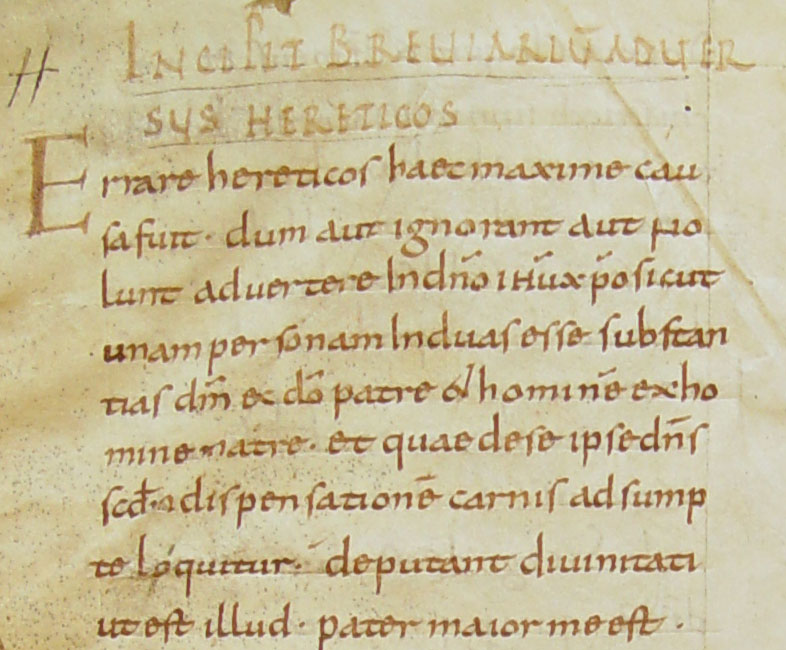 INCIPIT BREUIARIŪ ADUER
SUS HERETICOS
Errare hereticos haec maxime cau
sa fuit · dum aut ignorant aut no
lunt advertere In dn̄o ihū xp̄o sicut
unam personam In duas esse substan
tias dm̄ ex dō patre & hominē ex ho
mine matre · et quae de se ipse dn̄s
scd̄ dispensationē carnis adsump
te loquitur · deputant divinitati
ut est illud · pater maior me est ·